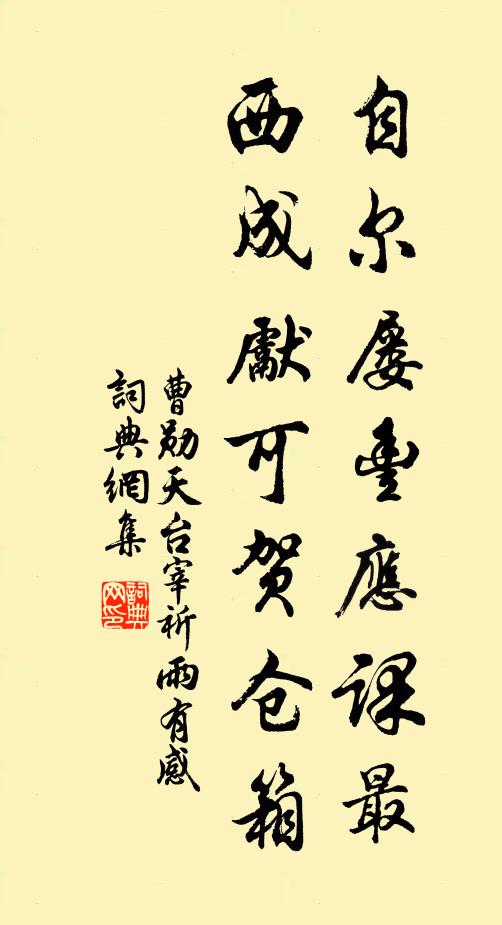 自尔屡豊應課最
西成獻可贺仓箱
曹勋天台宰祈雨有感
詞典網集
詞典網印